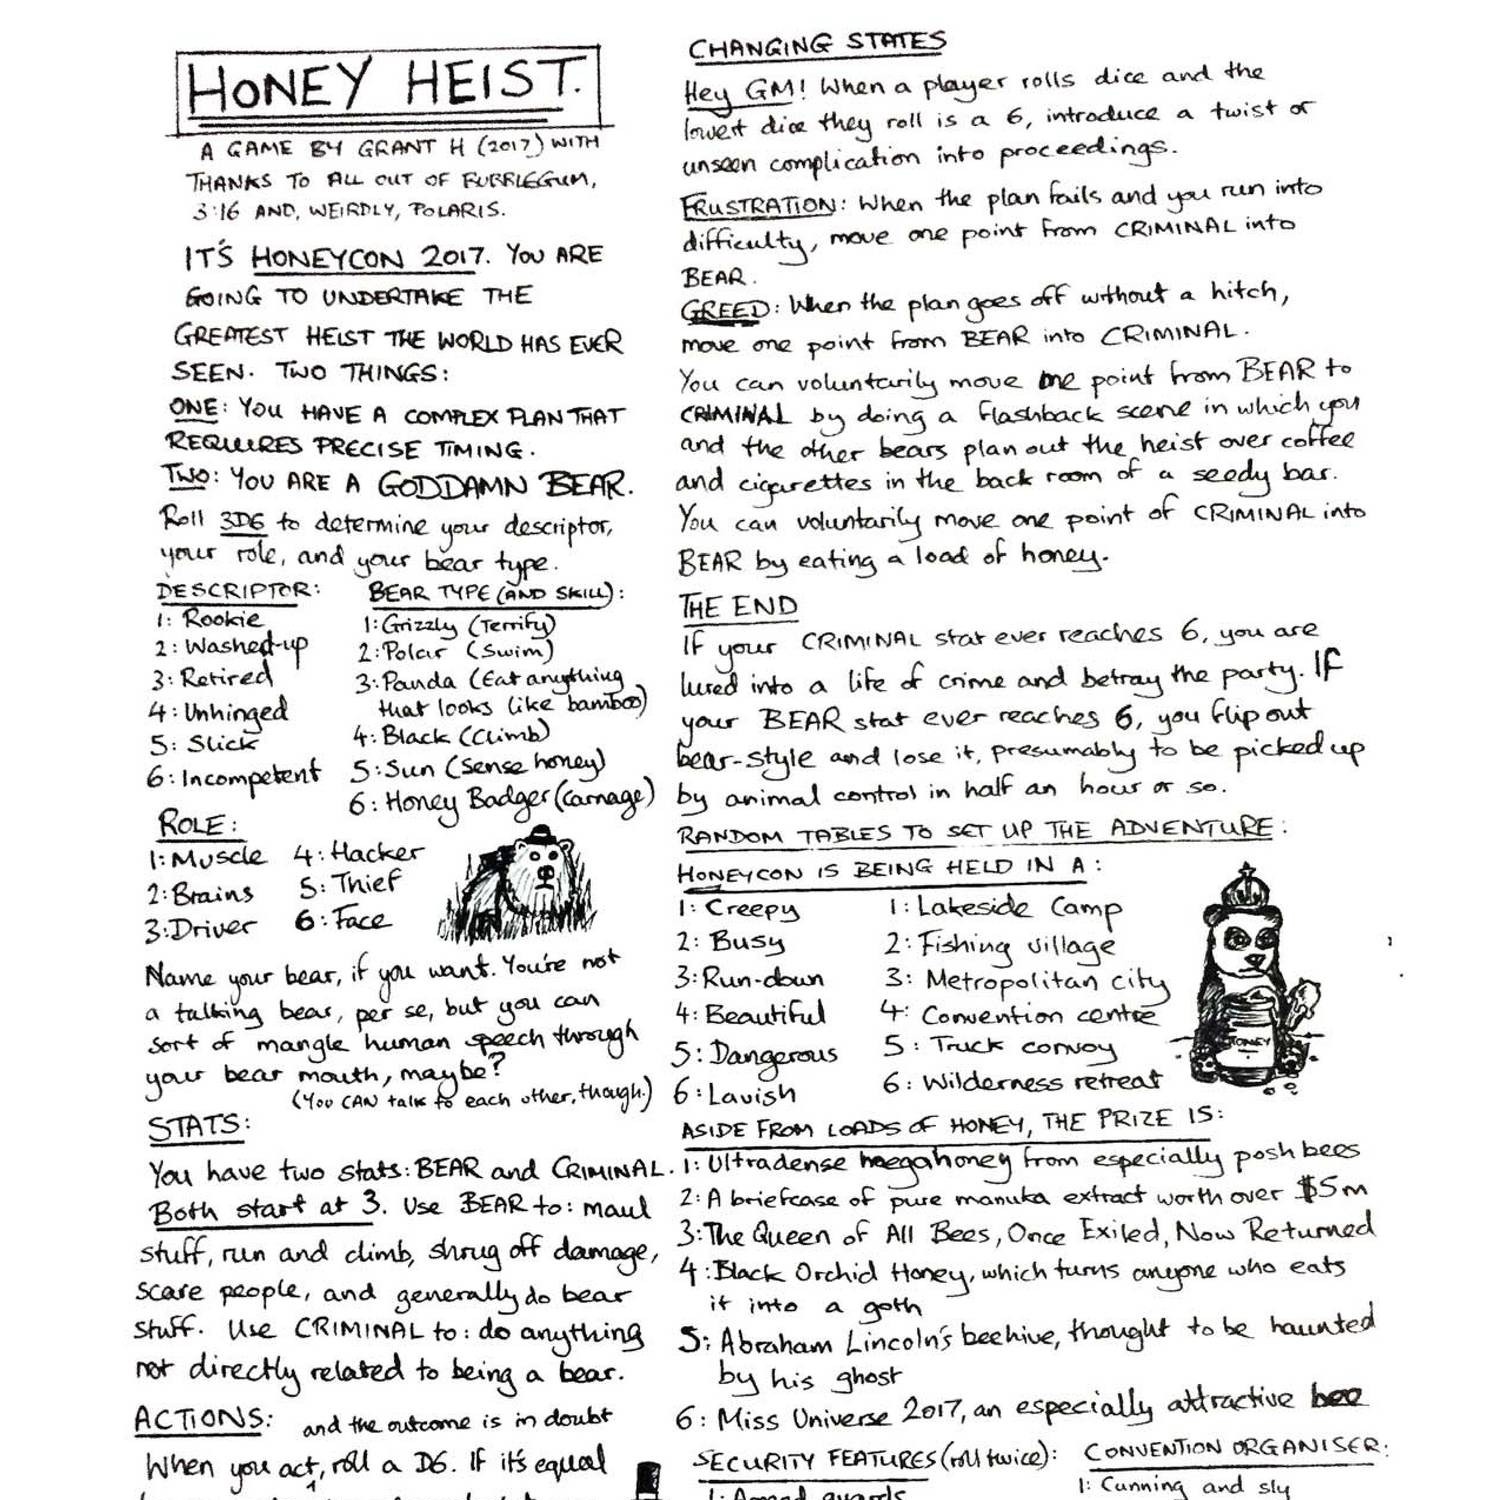 HONEY HEIST.
A GAME BY GRANT H (2017) WITH
THANKS TO ALL OUT OF BUBBLEGUM,
3:16 AND, WEIRDLY, POLARIS.
IT'S HONEYCON 2017. YOU ARE
GOING TO UNDERTAKE THE
GREATEST HEIST THE WORLD HAS EVER
SEEN. TWO THINGS:
ONE: YOU HAVE A COMPLEX PLAN THAT
REQUIRES PRECISE TIMING.
TWO: YOU ARE A GODDAMN BEAR.
Roll 3D6 to determine your descriptor,
your role, and your bear type.
DESCRIPTOR:
1: Rookie
2: Washed-up
3: Retired
4: Unhinged
5: Slick
6: Incompetent
BEAR TYPE (AND SKILL):
1: Grizzly (Terrify)
2: Polar (Swim)
3: Panda (Eat anything
that looks like bamboo)
4: Black (Climb)
5: Sun (Sense honey)
6: Honey Badger (carnage)
ROLE:
1: Muscle
2: Brains
3: Driver
4: Hacker
5: Thief
6: Face
Name your bear, if you want. You're not
a talking bear, per se, but you can
sort of mangle human speech through
your bear mouth, maybe?
(You CAN talk to each other, though.)
STATS:
You have two stats: BEAR and CRIMINAL.
Both start at 3. Use BEAR to: maul
stuff, run and climb, shrug off damage,
scare people, and generally do bear
stuff. Use CRIMINAL to: do anything
not directly related to being a bear.
ACTIONS: and the outcome is in doubt
When you act, roll a D6. If it's equal
CHANGING STATES
Hey GM! When a player rolls dice and the
lowest dice they roll is a 6, introduce a twist or
unseen complication into proceedings.
FRUSTRATION: When the plan fails and you run into
difficulty, move one point from CRIMINAL into
BEAR.
GREED: When the plan goes off without a hitch,
move one point from BEAR into CRIMINAL.
You can voluntarily move one point from BEAR to
CRIMINAL by doing a flashback scene in which you
and the other bears plan out the heist over coffee
and cigarettes in the back room of a seedy bar.
You can voluntarily move one point of CRIMINAL into
BEAR by eating a load of honey.
THE END
If your CRIMINAL stat ever reaches 6, you are
lured into a life of crime and betray the party. If
your BEAR stat ever reaches 6, you flip out
bear-style and lose it, presumably to be picked up
by animal control in half an hour or so.
RANDOM TABLES TO SET UP THE ADVENTURE:
HONEYCON IS BEING HELD IN A:
1: Creepy
2: Busy
3: Run-down
4: Beautiful
5: Dangerous
6: Lavish
1: Lakeside Camp
2: Fishing village
3: Metropolitan city
4: Convention centre
5: Truck convoy
6: Wilderness retreat
HONEY
ASIDE FROM LOADS OF HONEY, THE PRIZE IS:
1: Ultradense megahoney from especially posh bees
2: A briefcase of pure manuka extract worth over $5m
3: The Queen of All Bees, Once Exiled, Now Returned
4: Black Orchid Honey, which turns anyone who eats
it into a goth
5: Abraham Lincoln's beehive, thought to be haunted
by his ghost
6: Miss Universe 2017, an especially attractive bee
SECURITY FEATURES (roll twice):
1: Armed guards
CONVENTION ORGANISER:
1: Cunning and sly